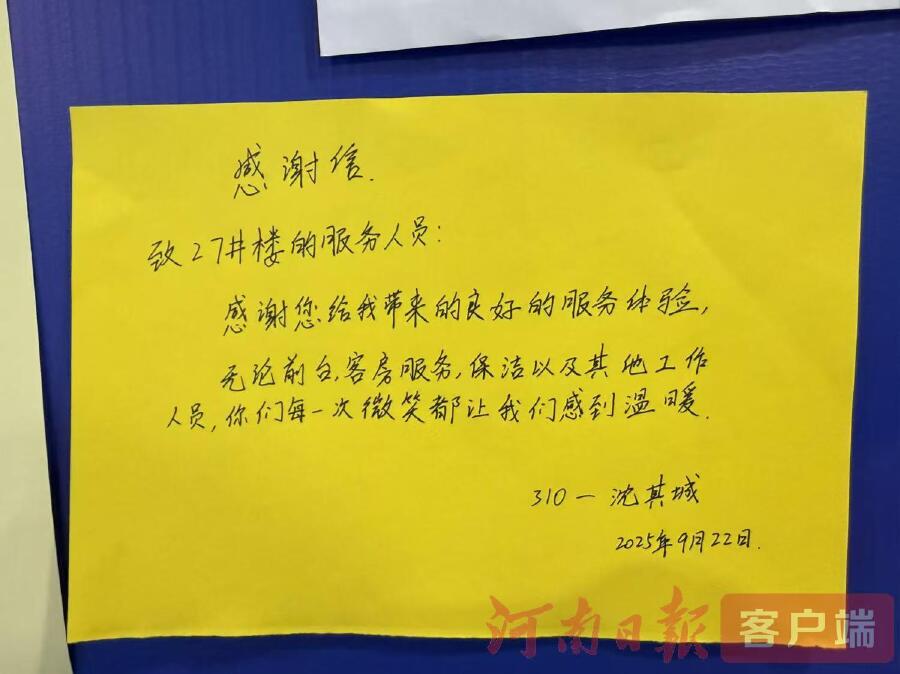 感谢信.
致27#楼的服务人员：
感谢您给我带来的良好的服务体验，
无论前台，客房服务，保洁以及其他工作
人员，你们每一次微笑都让我们感到温暖.
310一沈其城
2025年9月22日.
河南日报 客户端